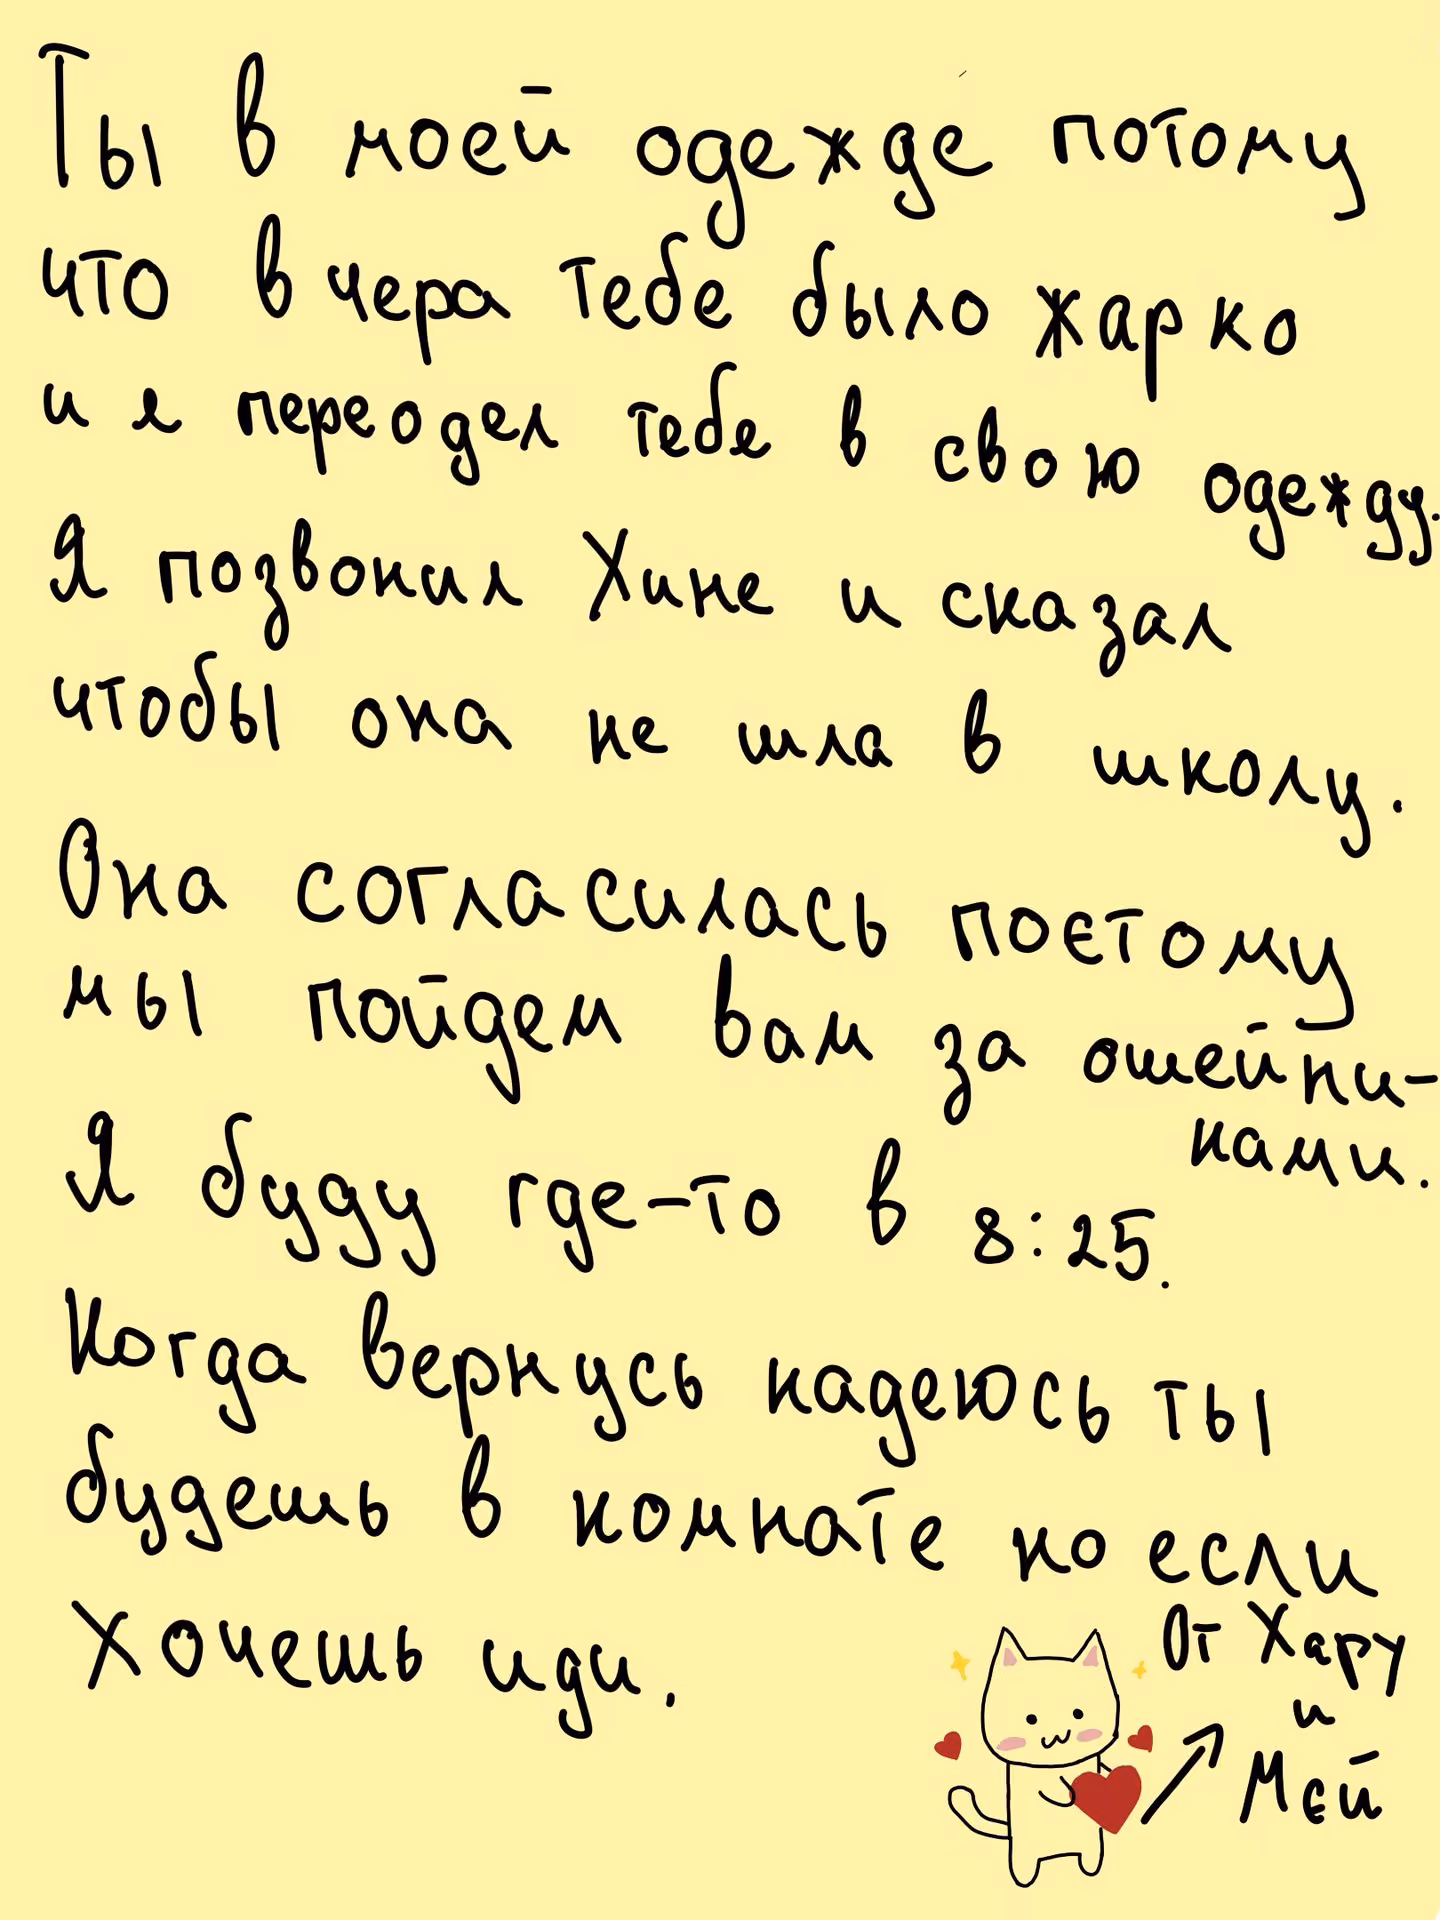 Ты в моей одежде потому
что вчера тебе было жарко
и я переодел тебе в свою одежду.
Я позвонил Хине и сказал
чтобы она не шла в школу.
Она согласилась поєтому
мы пойдем вам за ошейни-
ками.
Я буду где-то в 8:25.
Когда вернусь надеюсь ты
будешь в комнате но если
хочешь иди.
От Хару
и
Мєй